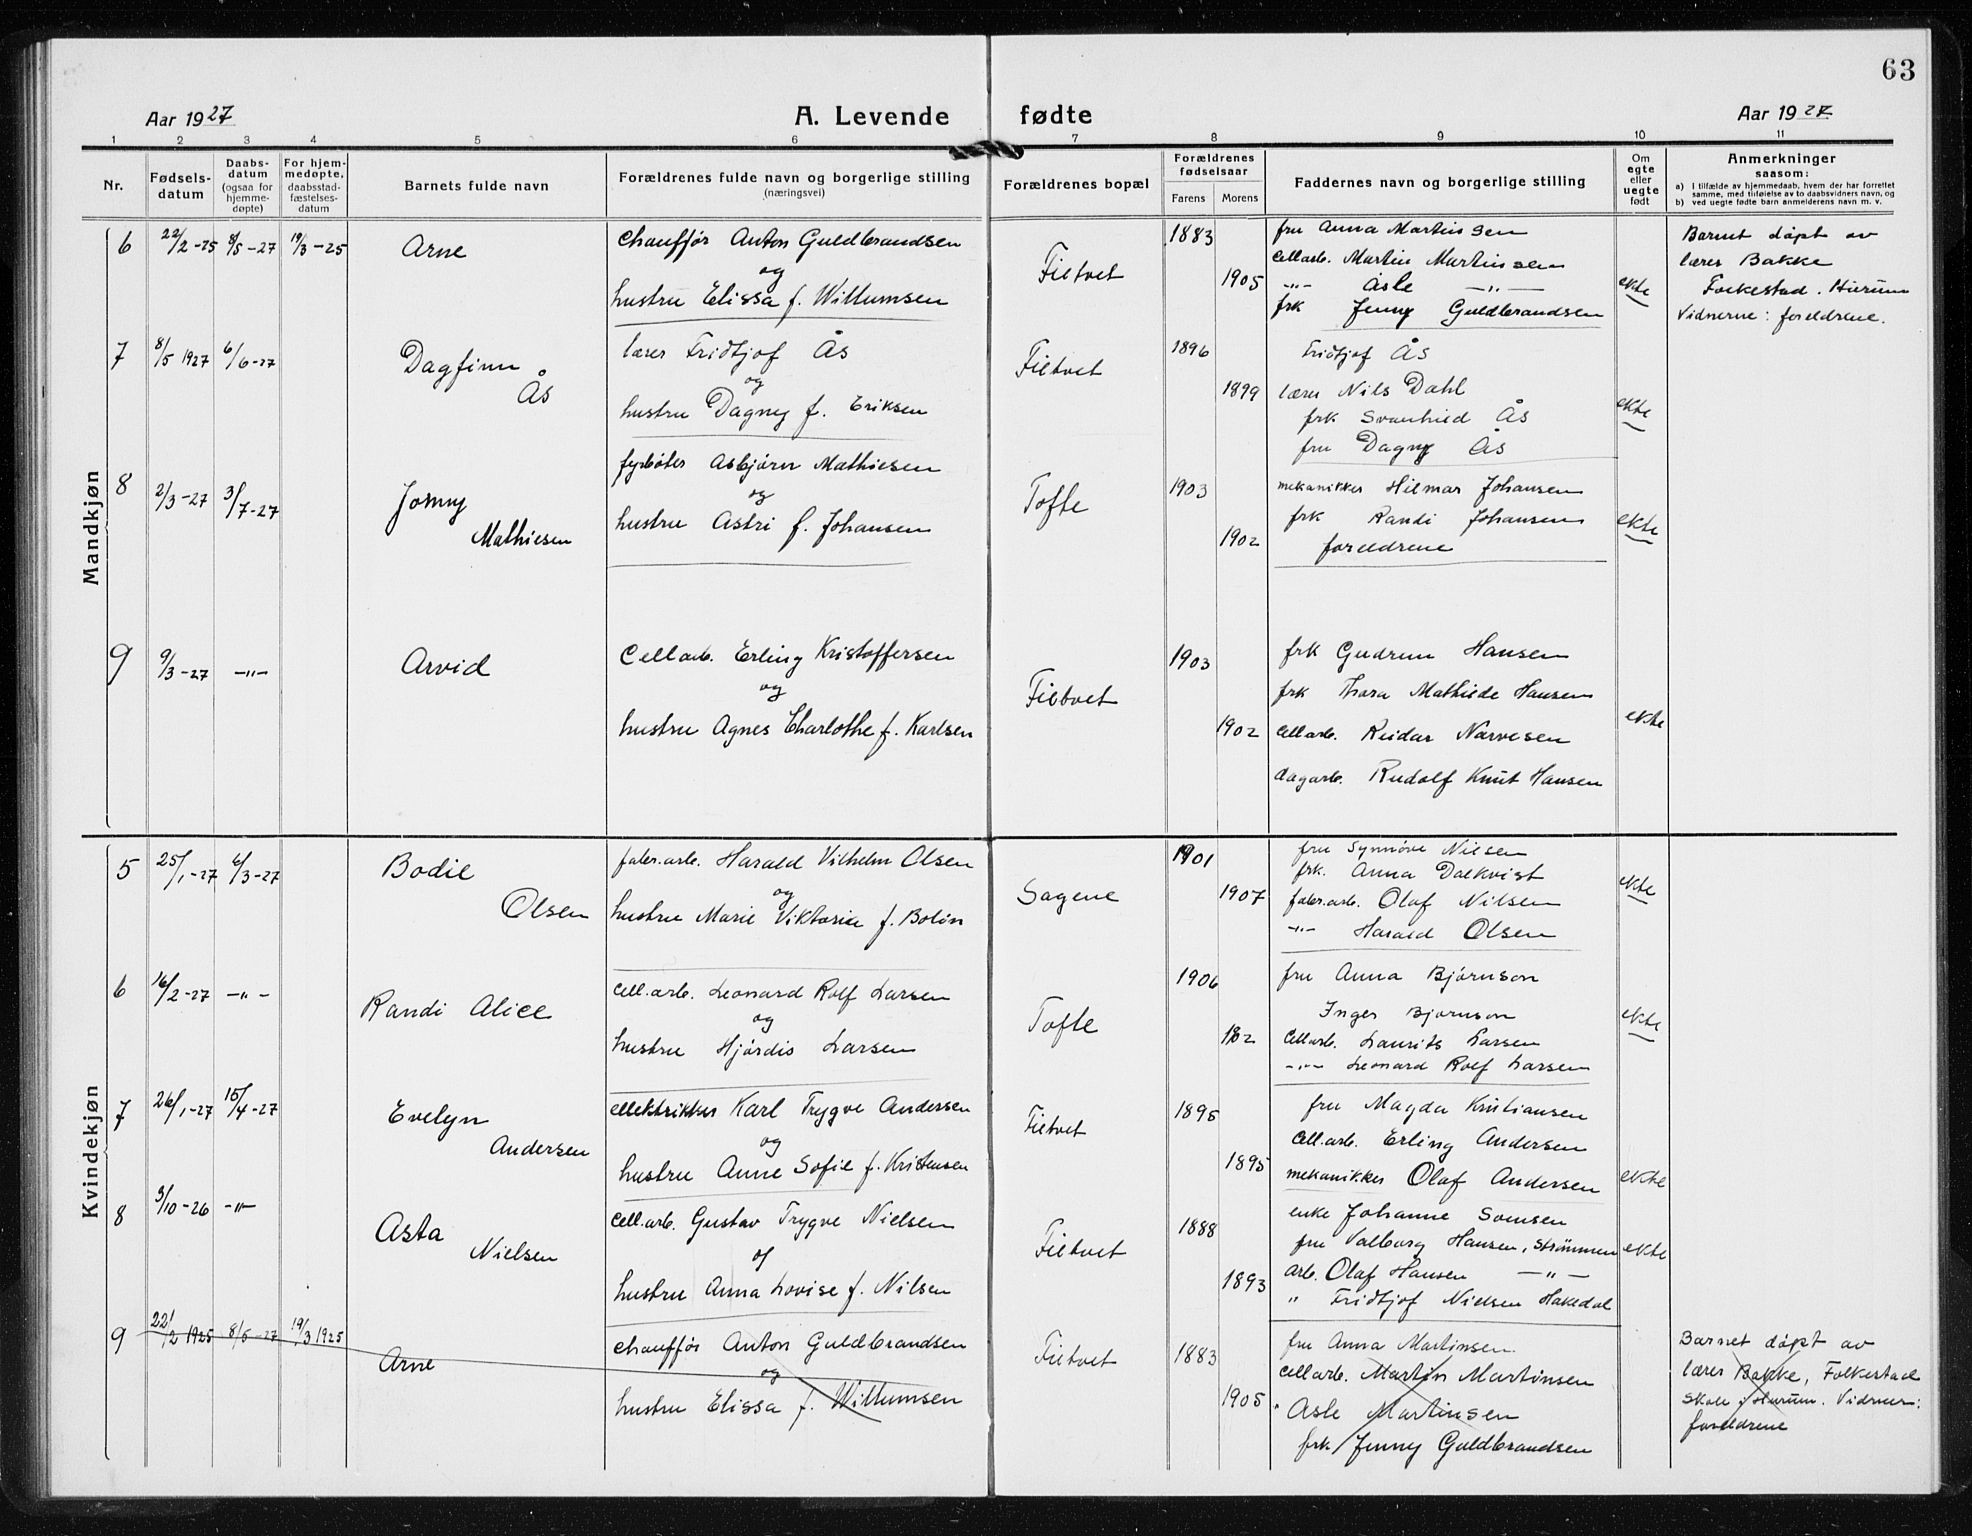 63
Aar 1927 A. Levende fødte Aar 1927
1 2 3 4 5 6 7 8 9 10 11
Nr.
Fødsels-
datum
Daabs-
datum
(ogsaa for
hjemme-
døpte)
For hjem-
medøpte,
daabsstad-
fæstelses-
datum
Barnets fulde navn
Forældrenes fulde navn og borgerlige stilling
(næringsvei)
Forældrenes bopæl
Forældrenes
fødselsaar
Farens Morens
Faddernes navn og borgerlige stilling
Om
egte
eller
uegte
født
Anmerkninger
saasom:
a) I tilfælde av hjemmedaab, hvem der har forrettet
samme, med tilføielse av to daabsvidners navn, og
b) ved uegte fødte barn anmelderens navn m. v.
Mandkjøn
6 22/2-25 8/5-27 19/3-25
Arne
chauffør Anton Guldbrandsen
og
hustru Elissa f. Willumsen
Filtvet
1883
1905
fru Anna Martinsen
cellarb. Martin Martinsen
-"- Asle -"-
frk Jenny Guldbrandsen
ekte
Barnet døpt av
lærer Bakke
Folkestad. Hurum
Vidnerne: foreldrene.
7 8/5 1927 6/6-27
Dagfinn
Ås
lærer Fridtjof Ås
og
hustru Dagny f. Eriksen
Filtvet
1896
1899
Fridtjof Ås
lærer Nils Dahl
frk Svanhild Ås
fru Dagny Ås
ekte
8 2/3-27 3/7-27
Jonny
Mathiesen
fyrbøter Asbjørn Mathiesen
og
hustru Astri f. Johansen
Tofte
1903
1902
mekanikker Hilmar Johansen
frk Randi Johansen
foreldrene
ekte
9 9/3-27 -"-
Arvid
Cellarb. Erling Kristoffersen
og
hustru Agnes Charlothe f. Karlsen
Filtvet
1903
1902
frk Gudrun Hansen
frk Thora Mathilde Hansen
cellarb. Reidar Narvesen
dagarb. Rudolf Knut Hansen
ekte
Kvindekjøn
5 25/1-27 6/3-27
Bodil
Olsen
faber.arb. Harald Vilhelm Olsen
og
hustru Marie Viktoria f. Bolin
Sagene
1901
1907
fru Synnøve Nilsen
frk. Anna Dalkvist
faber.arb. Olaf Nilsen
-"- Harald Olsen
ekte
6 16/2-27 -"-
Randi Alice
cell.arb. Leonard Rolf Larsen
og
hustru Hjørdis Larsen
Tofte
1906
fru Anna Bjørnson
Inger Bjørnson
cellarb. Laurits Larsen
-"- Leonard Rolf Larsen
ekte
7 26/1-27 15/4-27
Evelyn
Andersen
ellektrikker Karl Trygve Andersen
og
hustru Anne Sofie f. Kristensen
Filtvet
1895
1895
fru Magda Kristiansen
Cell.arb. Erling Andersen
mekanikker Olaf Andersen
ekte
8 3/10-26 -"-
Asta
Nielsen
cell.arb. Gustav Trygve Nielsen
of
hustru Anna Lovise f. Nilsen
Filtvet
1888
1893
enke Johanne Svensen
fru Valborg Hansen, Strømmen
arb. Olaf Hansen -"-
" Fridtjof Nielsen Hakedal
ekte
9 22/2 1925 8/5-27 19/3 1925
Arne
chauffør Anton Guldbrandsen
og
hustru Elissa f. Willumsen
Filtvet
1883
1905
fru Anna Martinsen
cellarb. Martin Martinsen
" Asle Martinsen
frk Jenny Guldbrandsen
Barnet døpt av
lærer Bakke, Folkestad
skole i Hurum. Vidner:
foreldrene